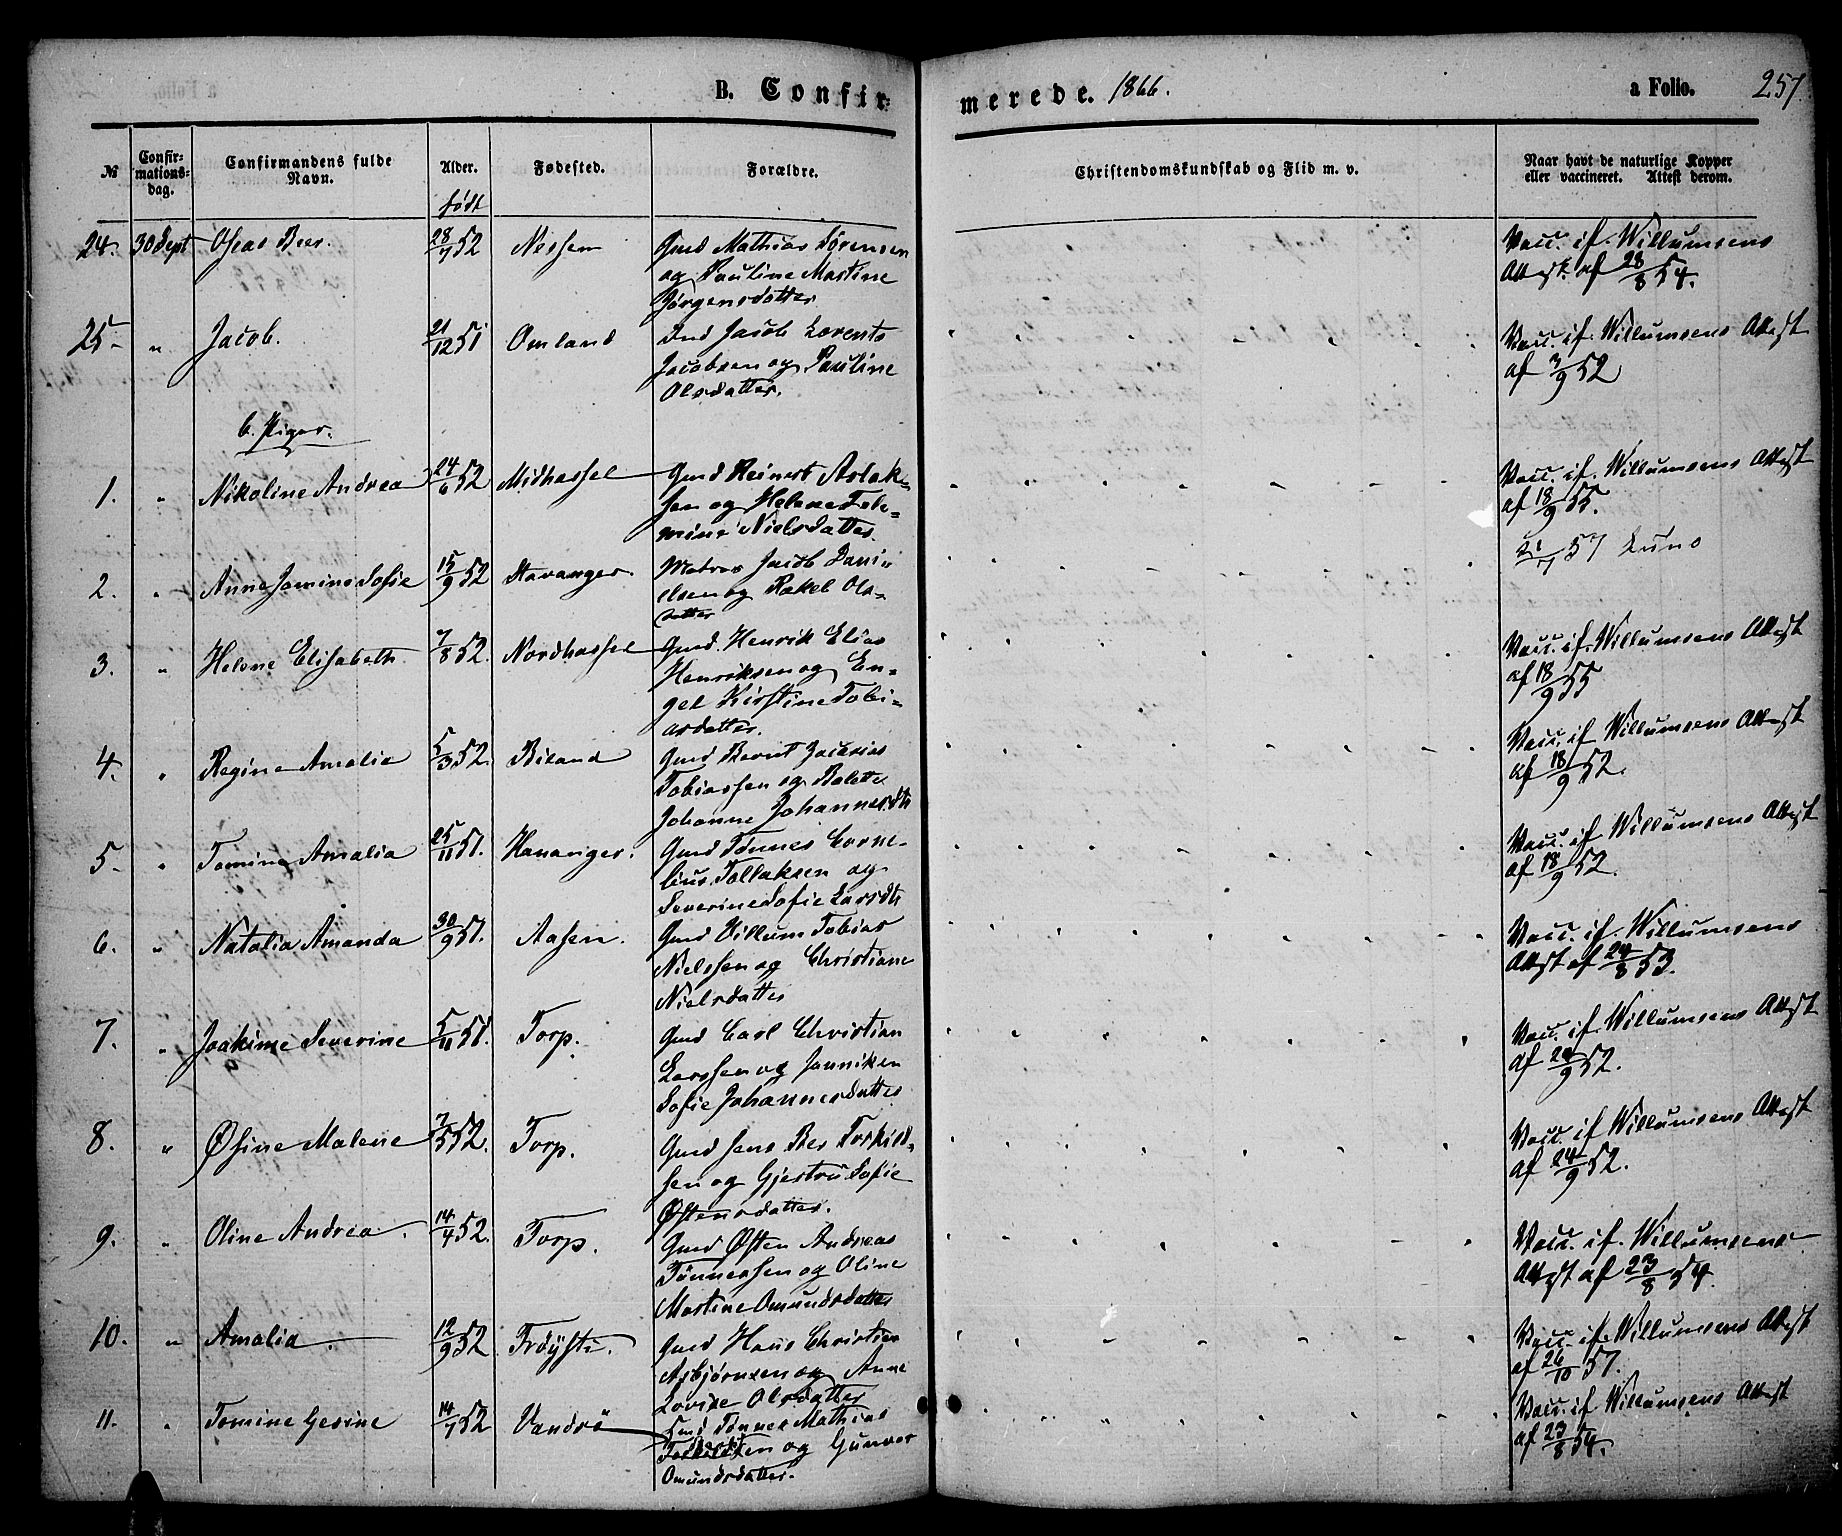 B. Confir-
merede. 1866.
a Folio. 257
№
Confir-
mations-
dag.
Confirmandens fulde
Navn.
Alder.
født
Fødested.
Forældre.
Christendomskundskab og Flid m. v.
Naar havt de naturlige Kopper
eller vaccineret. Attest derom.
24. 30 Sept Oseas Beer. 28/7 52 Nessem Gmd Mathias Sørensen
og Pauline Martine
Jørgensdatter
Vacc. if. Willumsens
Attest. af 28/8 54.
25. " Jacob. 21/12 51 Omland Ind Jacob Lorents
Jacobsen og Pauline
Olsdatter.
Vacc. if. Willumsens Attest
af 3/9 52
b. Piger.
1. " Nikoline Andrea 24/6 52 Midhassel Gmd Reinert Aslak-
sen og Helene Tobe-
mine Nielsdatter.
Vacc. if. Willumsens Attest
af 18/9 55.
2. " Anne Jomine Sofie 15/9 52 Stavanger. Matros Jacob Dani-
elsen og Rakel Ols-
datter
57 Luno
3. " Helene Elisabeth 7/8 52. Nordhassel Gmd. Henrik Elias
Henriksen og En-
gel Kirstine Tobi-
asdatter.
Vacc. if. Willumsens Attest
af 18/9 55
4. " Regine Amalia 5/3 52. Biland Gmd Bernt Zacarias
Tobiassen og Bolette
Johanne Johannesdtr
Vacc. if Willumsens Attest
af 18/9 52.
5. " Tomine Amalia 25/11 51. Hananger. Gmd Tønnes Corne-
lius Tollaksen og
Severine Sofie Larsdtr
Vacc. if Willumsens Attest
af 18/9 52.
6. " Natalia Amanda 30/9 51. Aasen. Gmd Villum Tobias
Nielssen og Christiane
Nielsdatter
Vacc. if. Willumsens
Attest af 24/8 53.
7. " Joakime Severine 5/11 51. Torp. Gmd Carl Christian
Larssen og Janniken
Sofie Johannesdatter
Vacc. if. Willumsens Attest
af 24/9 52.
8. " Øsine Malene 7/5 52. Torp. Gmd Jens Beer Torkild-
sen og Gjertru Sofie
Østensdatter.
Vacc. if Willumsens Attest
af 24/9 52.
9. " Oline Andrea. 14/4 52. Torp. Gmd Østen Andreas
Tønnessen og Oline
Martine Omundsdatter
Vacc. if. Willumsens
Attest af 23/8 54.
10. " Amalia 12/9 52 Trøyste. Gmd Hans Christian
Asbjørnsen og Anne
Lovise Olsdatter
Vacc. if. Willumsens Attest
af 26/10 57.
11. " Tomine Gesine 14/7 52 Vandsø Smd Tønnes Mathias
og Gunvor
Omundsdatter.
Vacc. if Willumsens Attest
af 23/8 54.